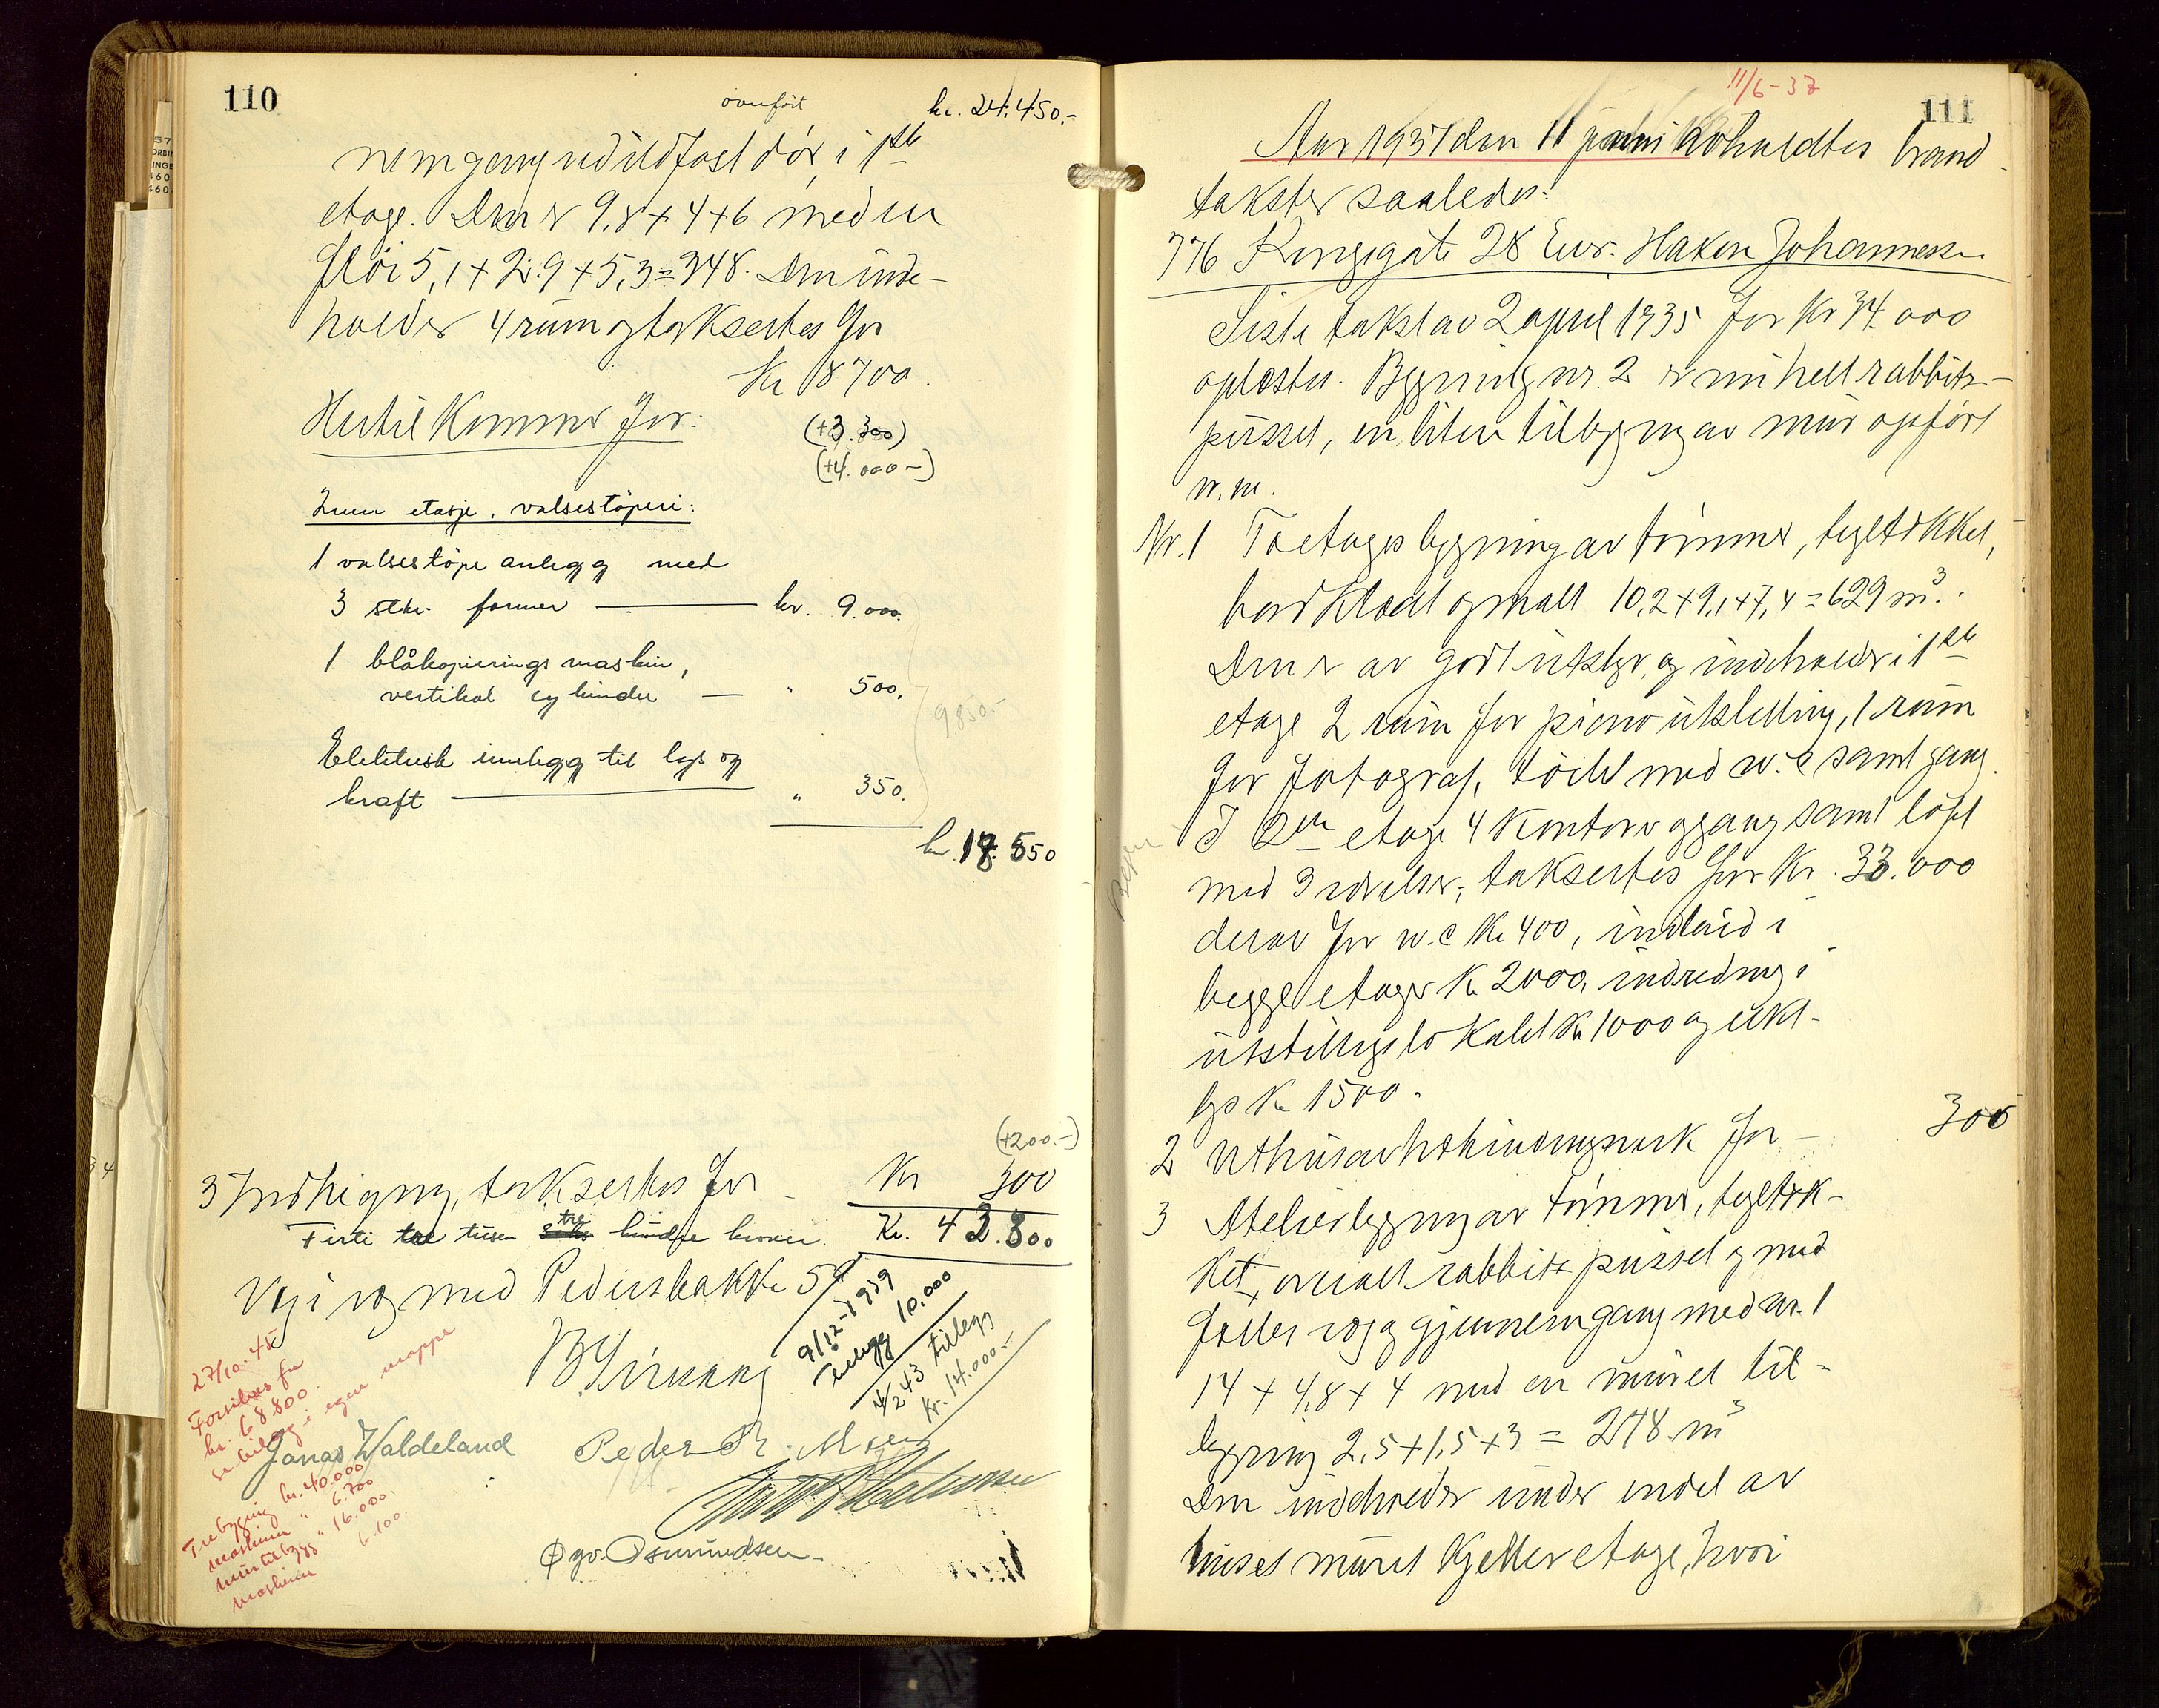 110
overført kr. 24.450.-
nemgang ved ildfast dör, i 1ste
etage. Den er 9,8+4+6 med en
flöi 5,1+2.9+5,3=348. Den inde-
holder 4 rum og taksertes for
Kr 18700.
Hertil kommer for:
(+3.300)
(+4.000-)
2nen etasje, valsestöperi:
1 valsestöpe anlegg med
3 stk. former — kr. 9.000.
1 blåkopierings maskin,
vertikal cylinder — " 500.
9.850.-
Elektrisk innlegg til lys og
kraft — " 350.
kr. 18.550
(+200.-)
3 Indhegning, taksertes for - Kr 300
Firti tre tusen tre hundre kroner. Kr. 42.300
Væg i væg med Pedersbakke 59
9/12-1939
Tillegg 10.000
4/2 43 tillegg
kr. 14.000.-
27/10.45
Forsikres for
kr. 68.800.
se bilag i egen mappe
Jonas Waldeland Peder
Trebygning kr. 40.000
maskiner " 6.700
murtilbygg " 16.000.
maskiner 6.100.
Øgv. Osmundsen.
11/6-37
111
Aar 1937 den 11 juni avholdtes brand-
takster saaledes:
776 Kongsgate 28 Eier: Hakon Johannessen
Siste takst av 2 april 1935 for Kr 34.000
oplæstes. Bygning nr. 2 er nu helt rabbits-
pusset, en liten tilbygning av mur opført
m.m.
Nr. 1 Toetages bygning av tømmer, tegltækket,
bordklædt og malt 10,2+9,1+7,4=629 m³.
Den er av godt utstyr, og indeholder i 1ste
etage 2 rum for piano utstilling, 1 rum
for fotograf, toilet med w.c samt gang.
I 2den etage 4 kontorer og gang samt löft
med 3 værelser, taksertes for Kr. 33.000
derav for w.c Kr 400, indlæd i
begge etager Kr 2000, indredning i
utstillingslokalet Kr 1000 og elekt-
lys Kr 1500.
2 Uthus av bekindingsverk for - 300
3 Atelierbygning av tømmer, tegltæk-
ket, overalt rabbits pusset og med
fælles væg og gjennemgang med nr. 1
14+4,8+4 med en muret til-
bygning 2,5+1,5+3 = 278 m³
Den indeholder under endel av
huset muret kjelleretage, hvori